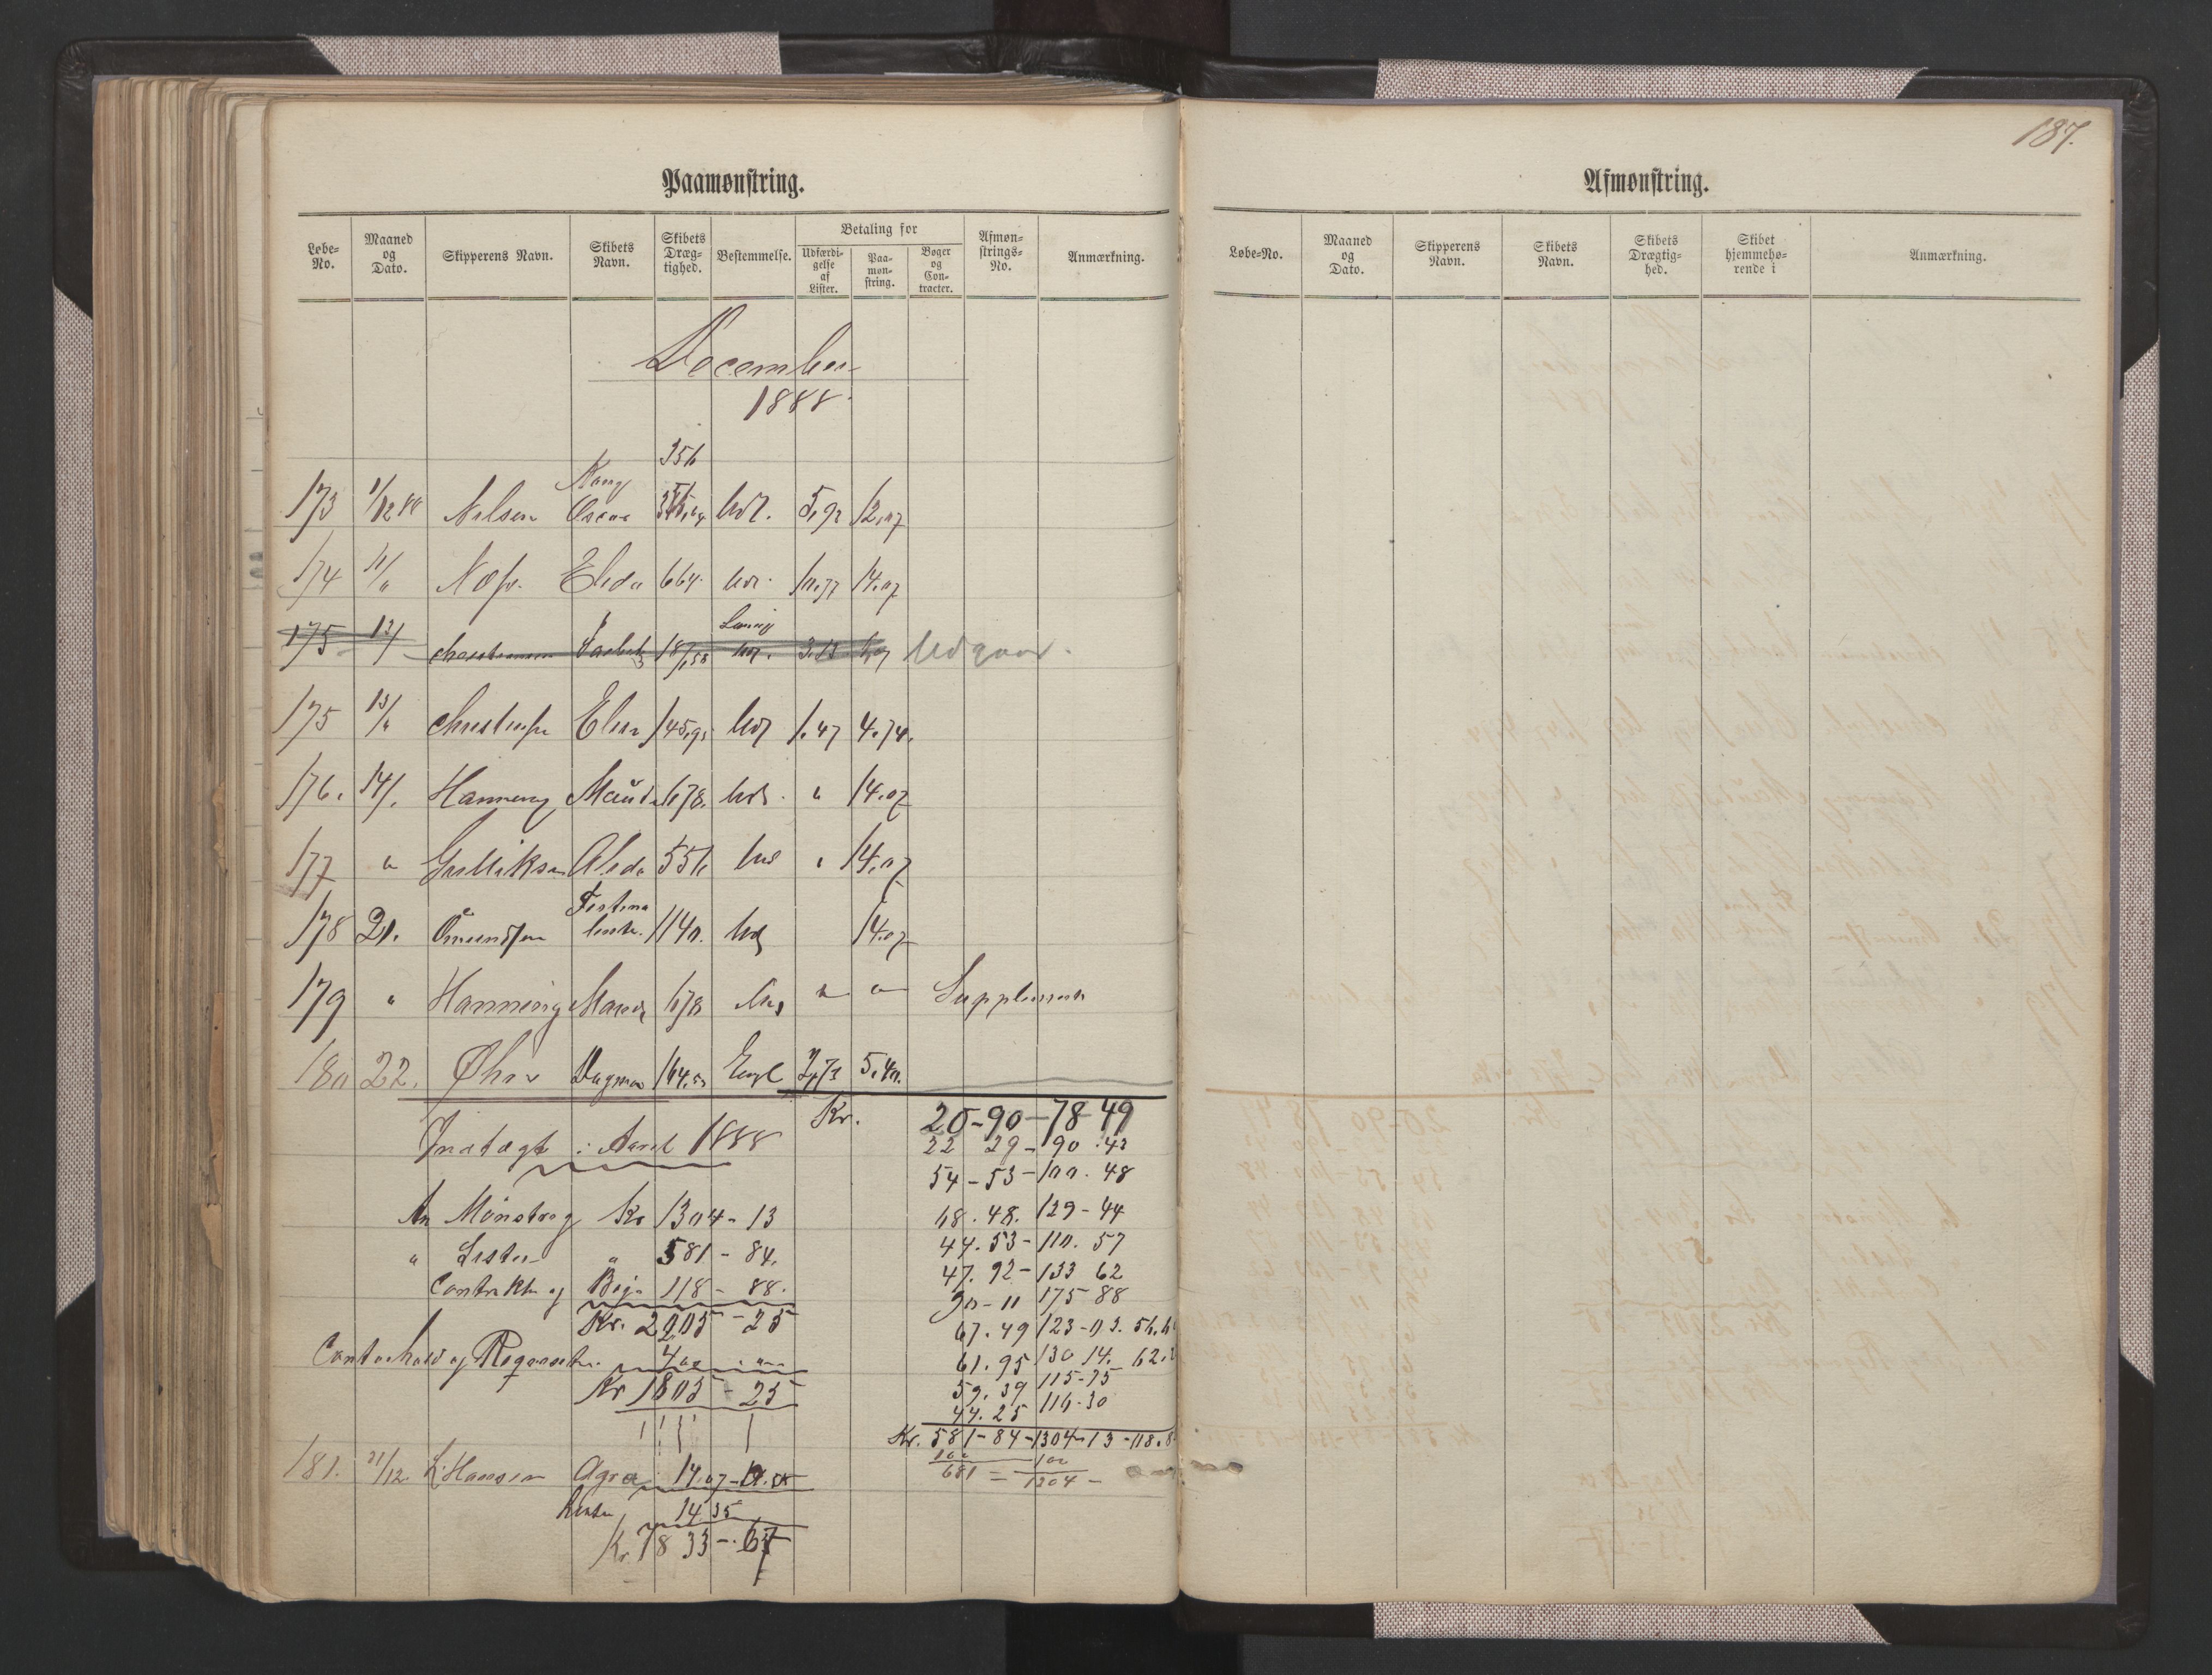 187.
Paamønstring.
Løbe-No. Maaned og Dato. Skipperens Navn. Skibets Navn. Skibets Dræg-tighed. Bestemmelse. Betaling for Udfærdi-gelse af Lister. Paa-møn-string. Bøger og Con-tracter. Afmøn-strings-No. Anmærkning.
December
1888
356
173 1/12 88 Nilsen Kong Oscar Udl. 5,92 12,07
174 11/" Næss Elida 664. Udl. 10.77 14.07
175 12/ 187,58 Udl. 3.13 Udgaar.
175 13/" Elisa 145,95 Udl 1.47 4.74.
176. 14/. Hanning Maud 678. Udl. " 14.07
177 " Gulliksen Alida 556 Udl " 14.07
178 21. Amundsen Festina lente. 1140. Udl 14.07
179 " Hanning Maud 678 Udl " " Supplement
180 22. Dagmar 164.53 Engl 2,73 5.40.
Kr. 20-90-78-49
Indtægt i Aaret 1888
22 29-90.43
54-53-100.48
An Mønstring Kr 1304-13
68.48. 129-44
" Lister " 581-84.
44.53-110.57
Contrakter og Bøger 118-88.
47.92-133 62
90-11 175-88
Kr. 2005-25
67.49 123-03.
Contorhold og Reqvisiter. 400
61.95 130 14.
Kr 1605-25
59.39 115-75
44.25 116-30
Kr. 581-84-1304-13-118.8
100 100
681 = 1204 -
181. 31/12 L. Hansen Agra 14.07
Lister 14 35
Kr. 1833-67
Afmønstring.
Løbe-No. Maaned og Dato. Skipperens Navn. Skibets Navn. Skibets Drægtig-hed. Skibet hjemmehø-rende i Anmærkning.